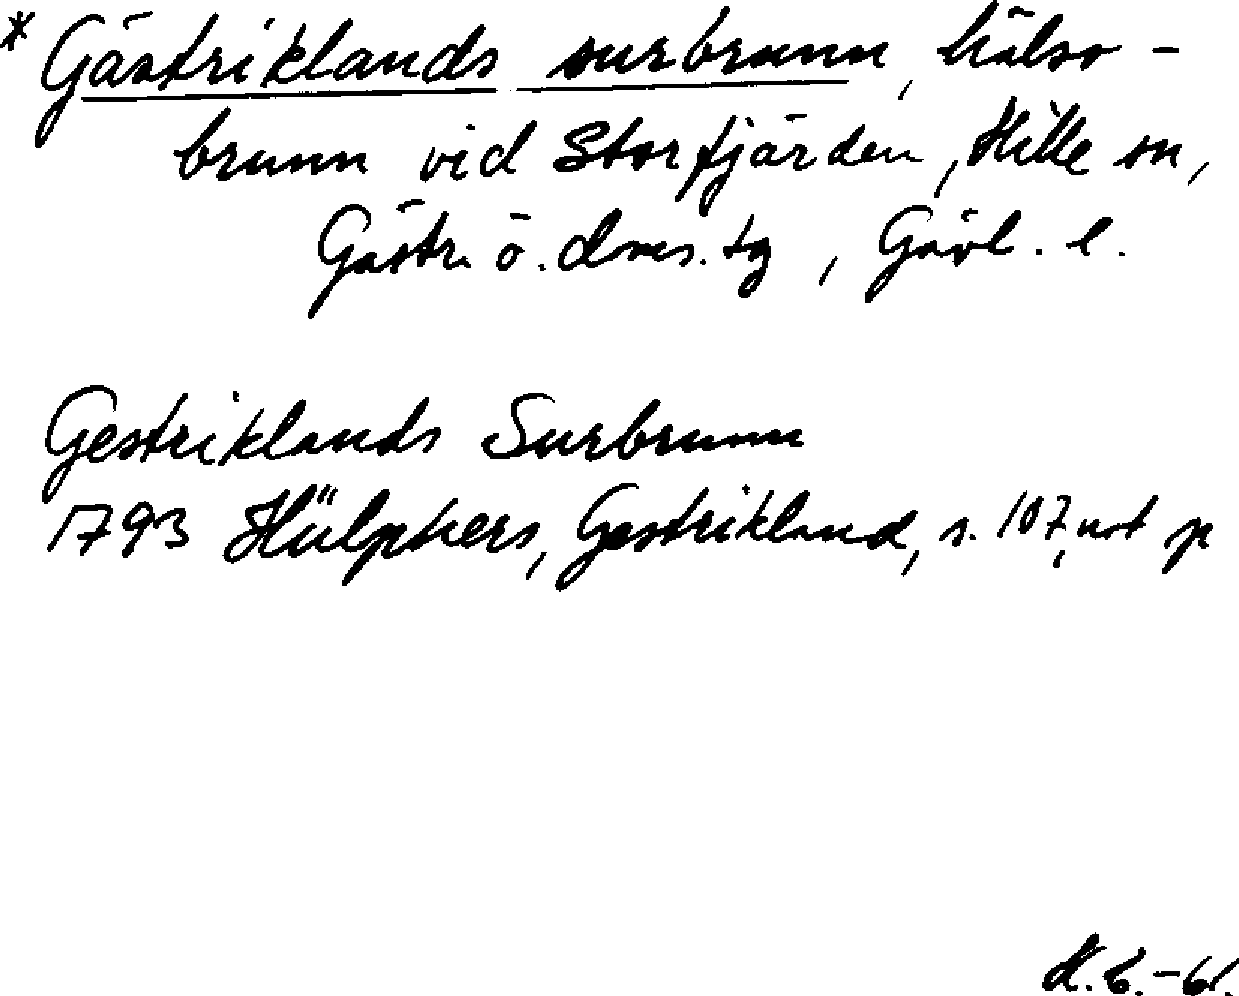 * Gästriklands surbrunn, hälso-
brunn vid Storfjärden, Hille sn,
Gästr. ö. doms. tg, Gävl. l.
Gestriklands Surbrunn
1793 Hülphers, Gestrikland, s. 107, not p
-61.